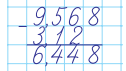 - 9,568
3,12
6,448